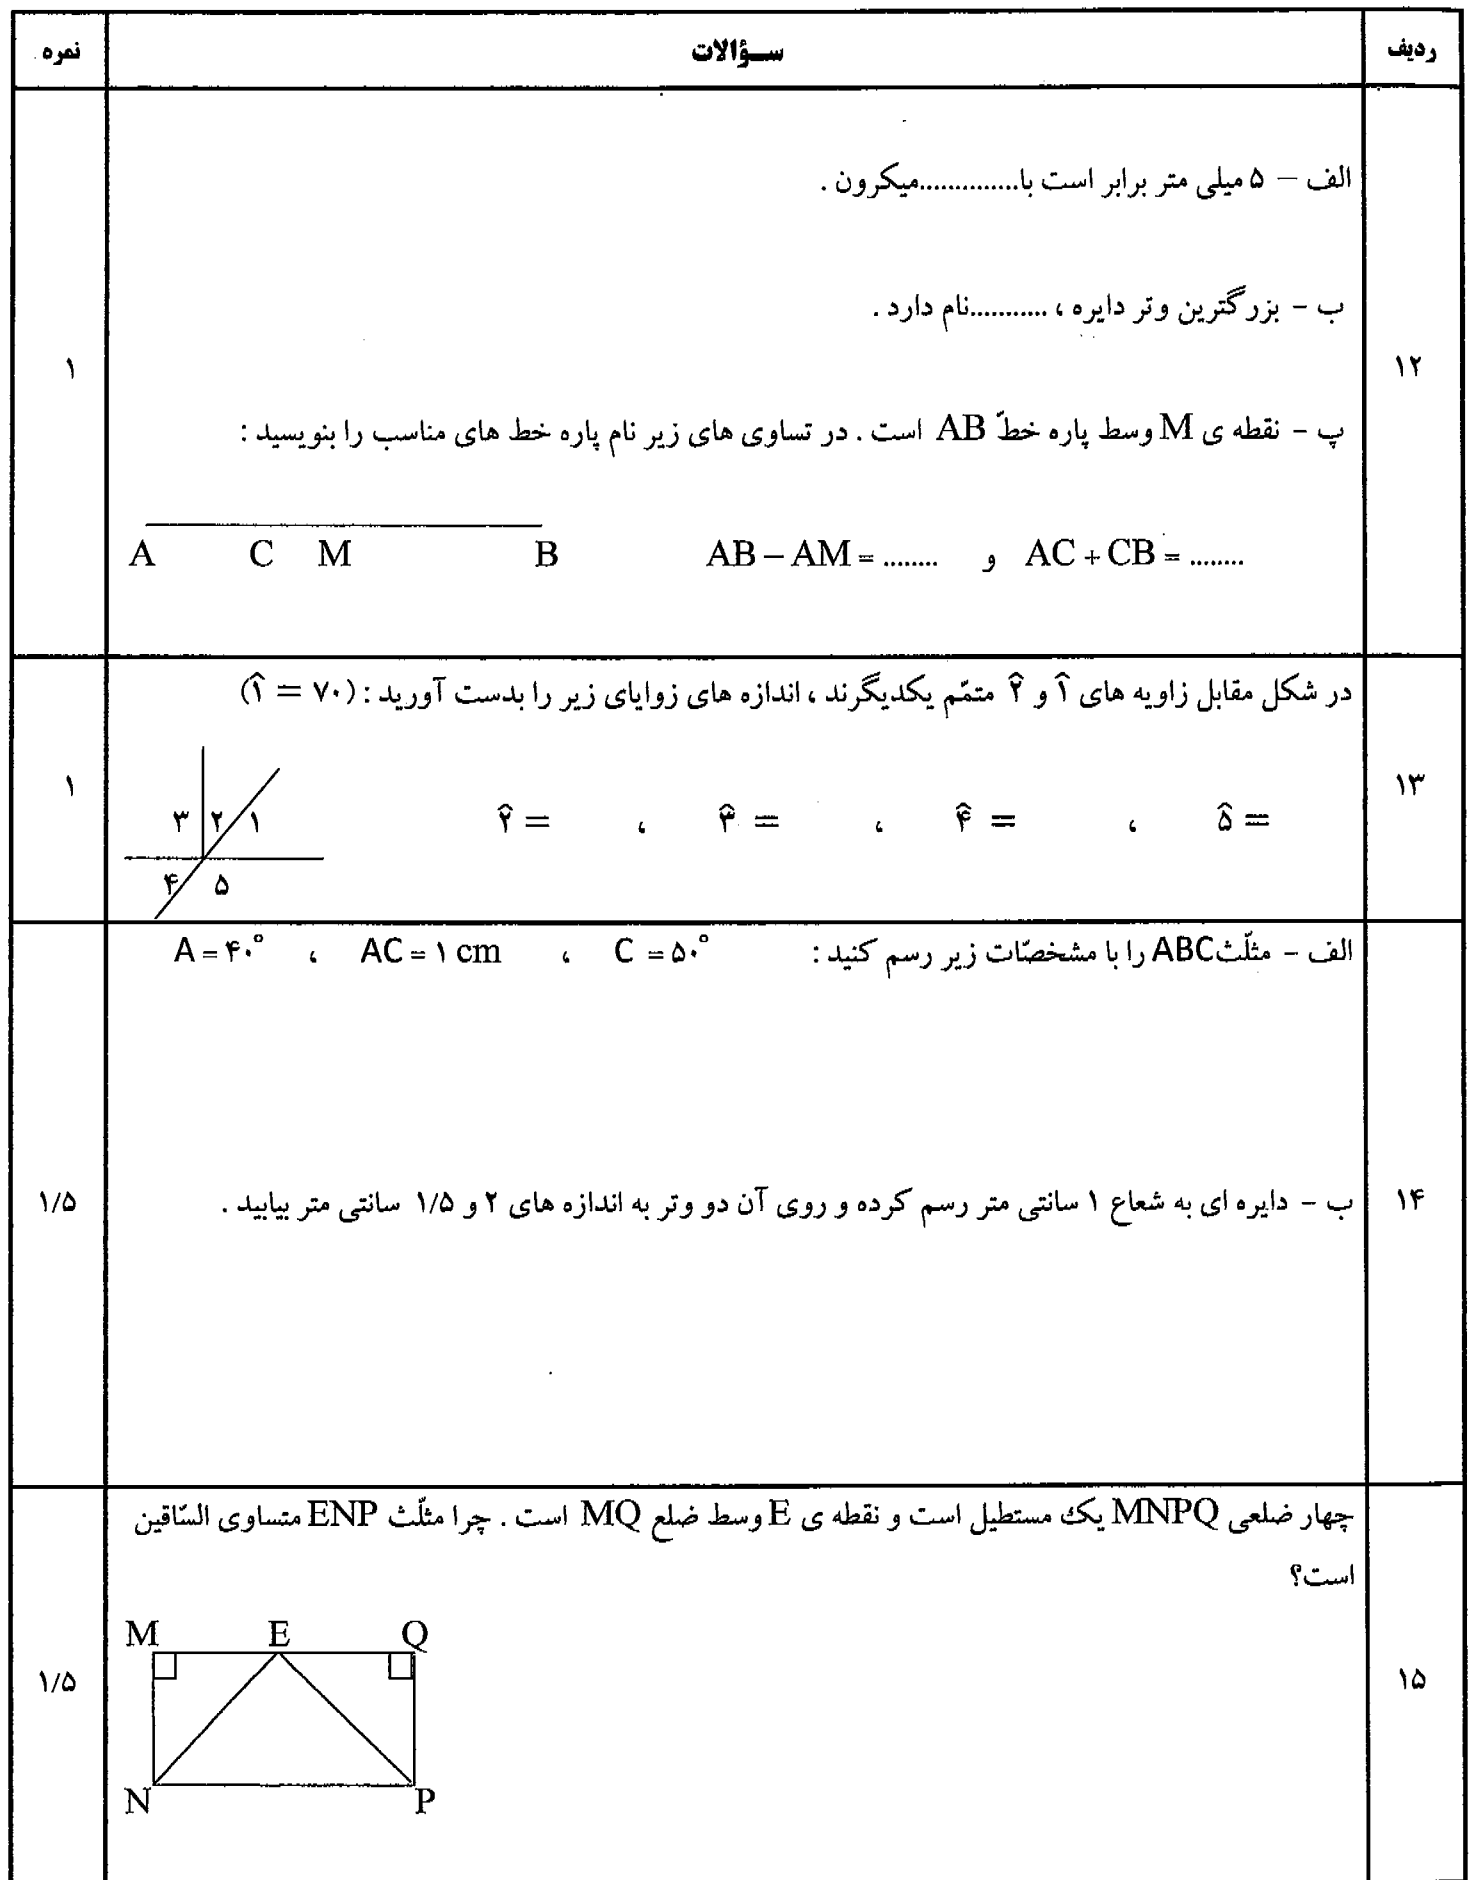 ردیف سـؤالات نمره
الف – ۵ میلی متر برابر است با..............میکرون .
ب - بزرگترین وتر دایره ، ...........نام دارد .
۱۲ ۱
پ - نقطه ی M وسط پاره خطّ AB است . در تساوی های زیر نام پاره خط های مناسب را بنویسید :
A C M B AB – AM = ........ و AC + CB = ........
در شکل مقابل زاویه های ۱̂ و ۲̂ متمّم یکدیگرند ، اندازه های زوایای زیر را بدست آورید : (۱̂ = ۷۰)
۱۳ ۱
۳ ۲ ۱ ۲̂ = ، ۳̂ = ، ۴̂ = ، ۵̂ =
۴ ۵
الف - مثلّث ABC را با مشخصّات زیر رسم کنید : A = ۴۰° ، AC = ۱ cm ، C = ۵۰°
۱۴ ب - دایره ای به شعاع ۱ سانتی متر رسم کرده و روی آن دو وتر به اندازه های ۲ و ۱/۵ سانتی متر بیابید . ۱/۵
چهار ضلعی MNPQ یک مستطیل است و نقطه ی E وسط ضلع MQ است . چرا مثلّث ENP متساوی السّاقین
است؟
M E Q
۱۵ ۱/۵
N P